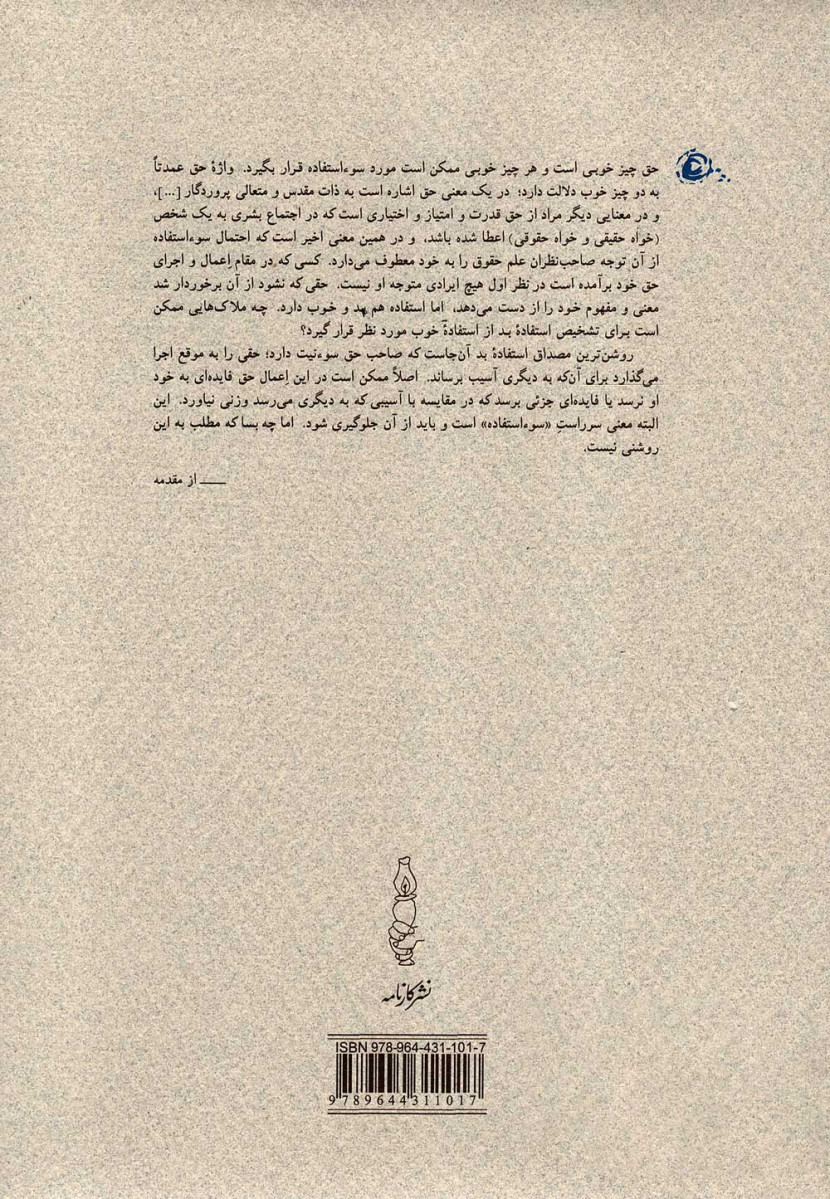 حق چیز خوبی است و هر چیز خوبی ممکن است مورد سوءاستفاده قرار بگیرد. واژهٔ حق عمدتاً
به دو چیز خوب دلالت دارد؛ در یک معنی حق اشاره است به ذات مقدس و متعالی پروردگار [...]،
و در معنایی دیگر مراد از حق قدرت و امتیاز و اختیاری است که در اجتماع بشری به یک شخص
(خواه حقیقی و خواه حقوقی) اعطا شده باشد، و در همین معنی اخیر است که احتمال سوءاستفاده
از آن توجه صاحب‌نظران علم حقوق را به خود معطوف می‌دارد. کسی که در مقام اِعمال و اجرای
حق خود برآمده است در نظر اول هیچ ایرادی متوجه او نیست. حقی که نشود از آن برخوردار شد
معنی و مفهوم خود را از دست می‌دهد، اما استفاده هم بد و خوب دارد. چه ملاک‌هایی ممکن
است برای تشخیص استفادهٔ بد از استفادهٔ خوب مورد نظر قرار گیرد؟
روشن‌ترین مصداق استفادهٔ بد آن‌جاست که صاحب حق سوءنیت دارد؛ حقی را به موقع اجرا
می‌گذارد برای آن‌که به دیگری آسیب برساند. اصلاً ممکن است در این اِعمال حق فایده‌ای به خود
او نرسد یا فایده‌ای جزئی برسد که در مقایسه با آسیبی که به دیگری می‌رسد وزنی نیاورد. این
البته معنی سرراستِ «سوءاستفاده» است و باید از آن جلوگیری شود. اما چه بسا که مطلب به این
روشنی نیست.
ـــــ از مقدمه
نشر کارنامه
ISBN 978-964-431-101-7
9 789644 311017